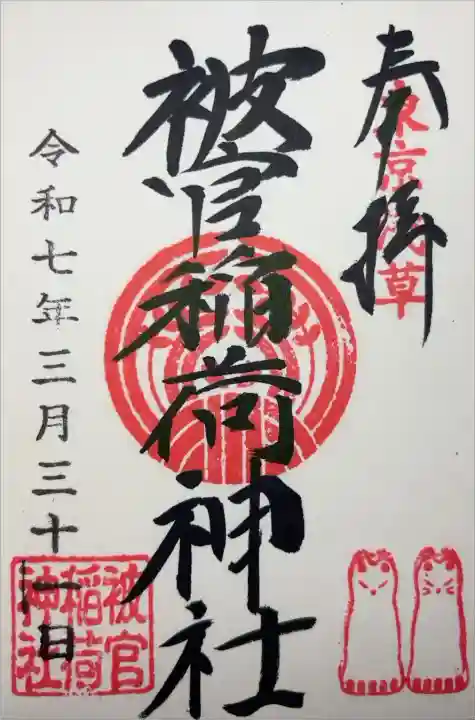 奉拝
東京浅草
被官稲荷神社
令和七年三月三十一日
被官
稲荷
神社